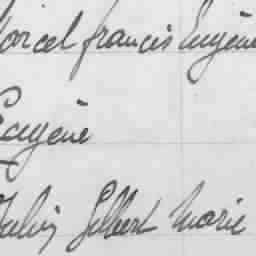 Marcel francis Eugène
Eugène
Gilbert Marie